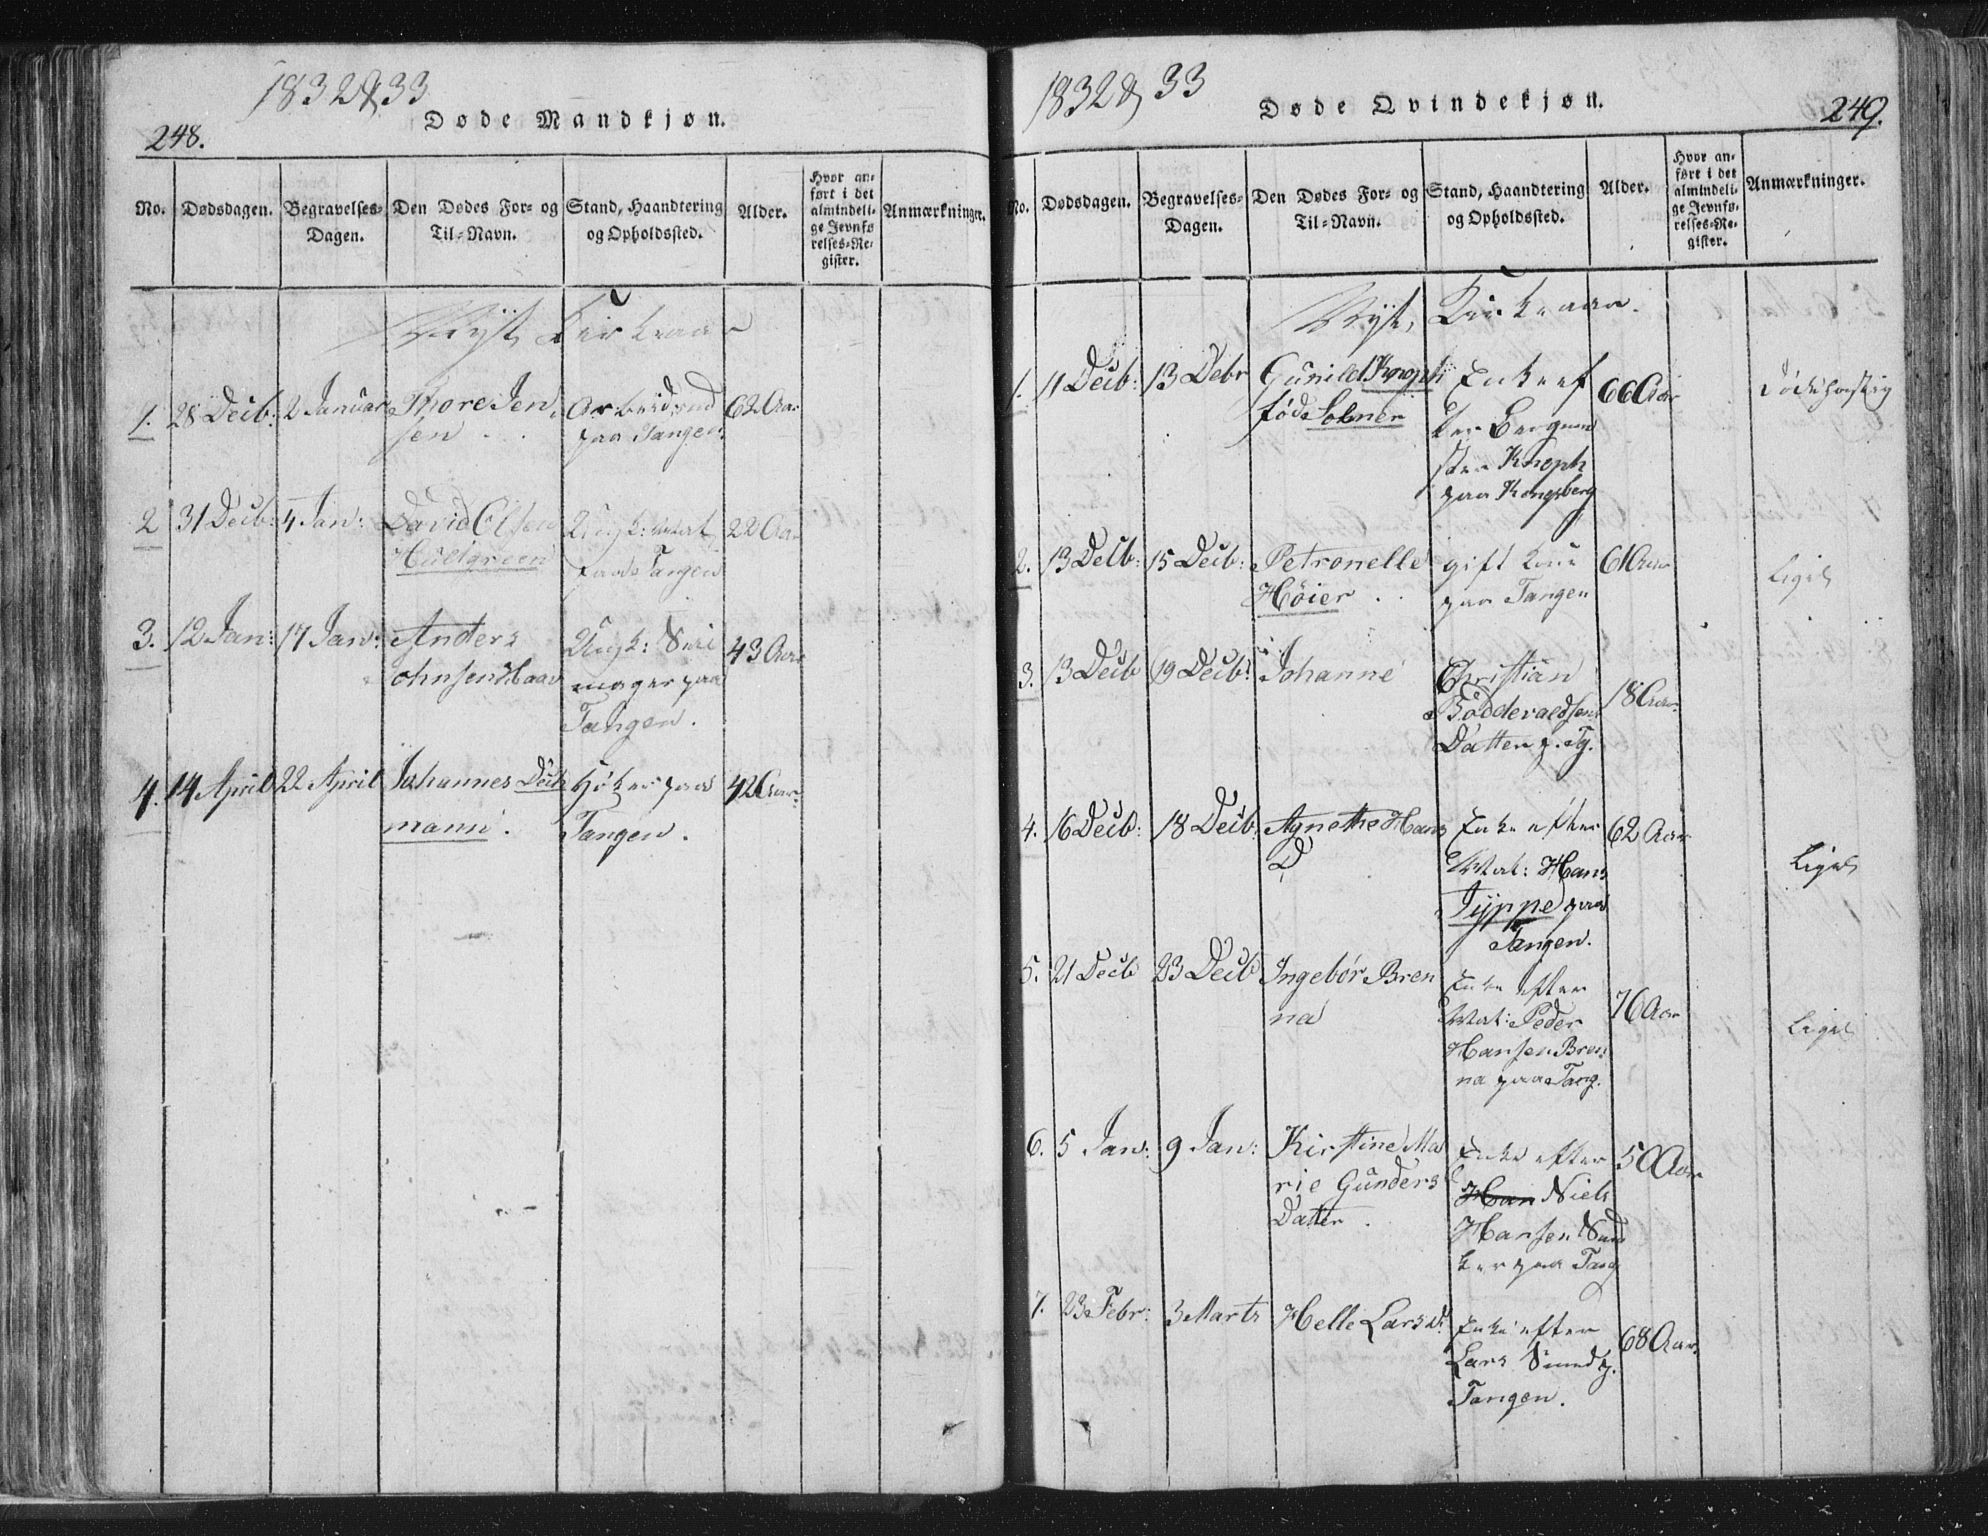 1832 & 33
248.
Døde Mandkjøn.
No. Dødsdagen. Begravelses-Dagen. Den Dødes For- og Til-Navn. Stand, Haandtering og Opholdssted. Alder. Hvor anført i det almindelige Jevnførelses-Register. Anmærkninger.
Nyt Kirkeaar
1. 28 Decb: 2 Januar Thore Jen
sen
Arbeidsmd
paa Tangen
62 Aar
2 31 Decb: 4 Jan: David Olsen
Hultgreen
Ungk: Mat
paa Tangen
22 Aar
3. 12 Jan: 17 Jan: Anders
ohnsen Haav
Ungk:
mager paa
Tangen.
43 Aar
4. 14 April 22 April Johannes Deich
mann.
Høker paa
Tangen.
42 Aar
1832 & 33
Døde Qvindekjøn.
249.
No. Dødsdagen. Begravelses-Dagen. Den Dødes For- og Til-Navn. Stand, Haandtering og Opholdssted. Alder. Hvor anført i det almindelige Jevnførelses-Register. Anmærkninger.
Nyt Kirkeaar.
1. 11 Decb: 13 Debr Gunild Knoph
fød Solner
Enke ef
ter Bergme
ster Knoph
paa Kongsberg
66 Aar
2. 13 Decb: 15 Decb: Petronelle
Høier
gift Kone
paa Tangen
61 Aar
Ligel
3. 13 Decb 19 Decb: Johanne
Christian
Boddevaldsens
Datter p. Tg.
18 Aar
4. 16 Decb: 18 Decb. Agnethe Hans
D
Enke efter
Mat: Hans
Typpe paa
Tangen.
62 Aar
Ligel
5. 21 Decb 23 Decb Ingebór Bren
na
Enke efter
Mat: Peder
Hansen Bren
na paa Tang.
76 Aar
Ligel
6. 5 Jan: 9 Jan: Kirstine Ma
rie Gunders
Datter.
Enke efter
Han Niels
Hansen Sned
ker paa Tang
50 Aar
7. 23 Febr: 3 Marts Helle Larsd:
Enke efter
Lars Smed p.
Tangen.
68 Aar